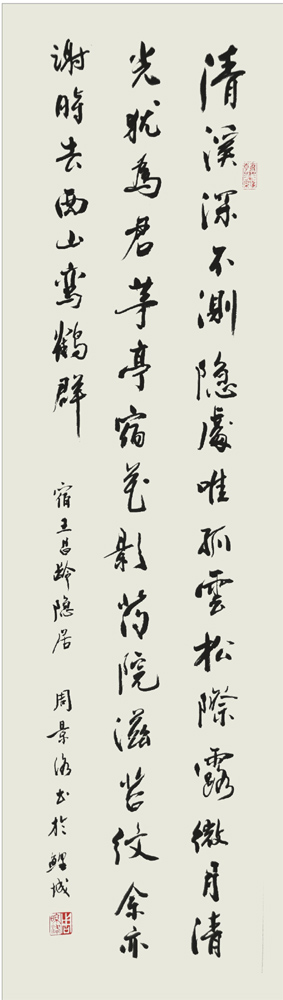 清溪深不測隐處唯孤雲松際露微月清
光犹為君茅亭宿花影药院滋苔纹余亦
謝時去西山鸾鶴群
宿王昌龄隐居 周景洛书於鲤城